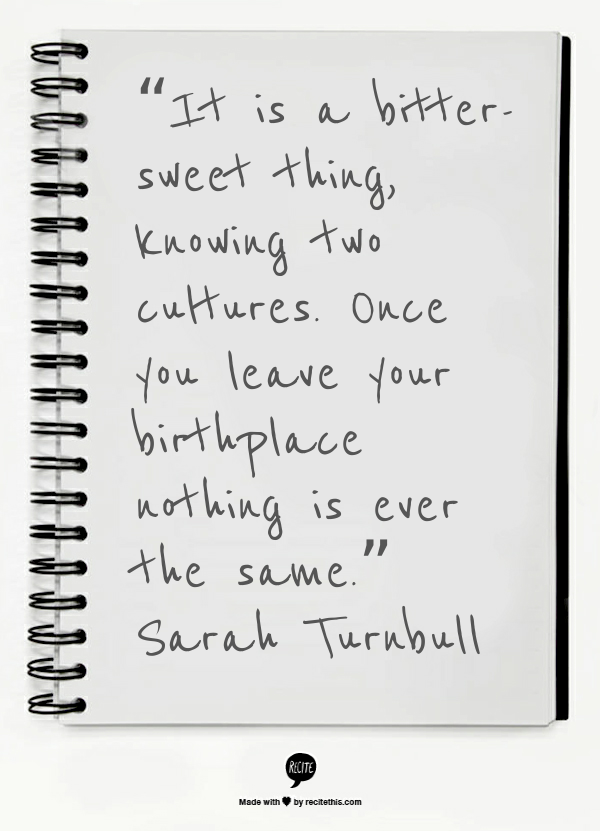 “It is a bitter-
sweet thing,
knowing two
cultures. Once
you leave your
birthplace
nothing is ever
the same.”
Sarah Turnbull
RECITE
Made with ♥ by recitethis.com